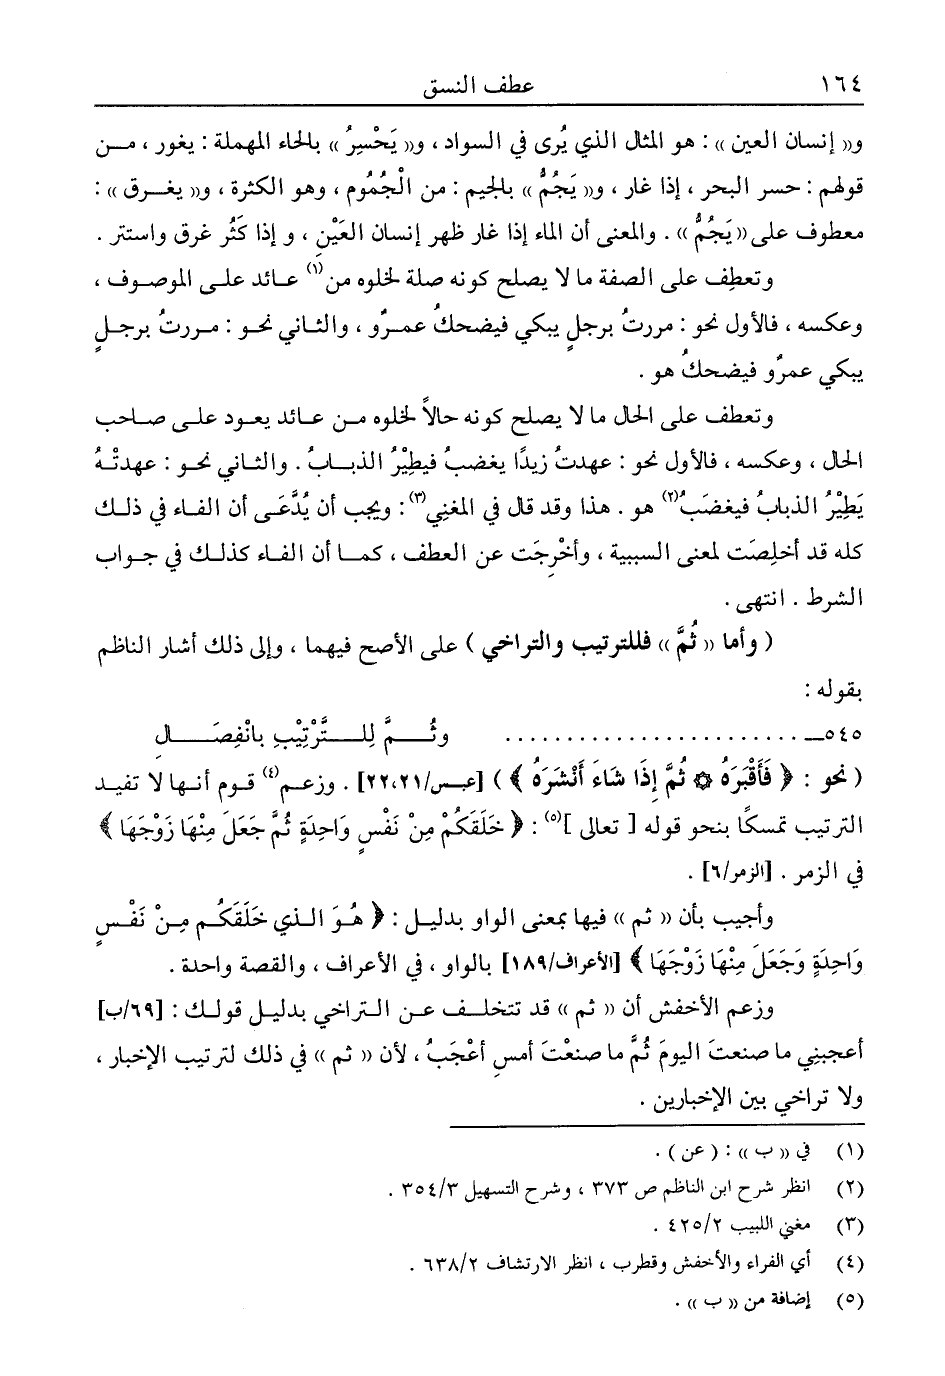 ١٦٤ عطف النسق
و(( إنسان العين )) : هو المثال الذي يُرى في السواد ، و(( يَحْسِرُ )) بالحاء المهملة : يغور ، مـن
قولهم : حسر البحر ، إذا غار ، و(( يَجُمُّ )) بالجيم : من الْجُمُوم ، وهو الكثرة ، و(( يغـرق )) :
معطوف على (( يَجُمُّ )) . والمعنى أن الماء إذا غار ظهر إنسان العَيْنِ ، و إذا كَثُر غرق واستتر .
وتعطِف على الصفة ما لا يصلح كونه صلة لخلوه من(١) عـائد علـى الموصـوف ،
وعكسه ، فالأول نحو : مررتُ برجلٍ يبكي فيضحكُ عمـرٌو ، والثـاني نحـو : مـررتُ برجـلٍ
يبكي عمرٌو فيضحكُ هو .
وتعطف على الحال ما لا يصلح كونه حالاً لخلوه مـن عـائد يعـود علـى صـاحب
الحال ، وعكسه ، فالأول نحو : عهدتُ زيدًا يغضبُ فيطِيْرُ الذبـابُ . والثـاني نحـو : عهدتْـهُ
يَطِيْرُ الذبابُ فيغضَبُ(٢) هو . هذا وقد قال في المغني(٣) : ويجب أن يُدَّعَـى أن الفـاء في ذلـك
كله قد أخلِصَت لمعنى السببية ، وأخْرِجَت عن العطف ، كمـا أن الفـاء كذلـك في جـواب
الشرط . انتهى .
( وأما (( ثُمَّ )) فللترتيب والتراخي ) على الأصح فيهما ، وإلى ذلك أشار الناظم
بقوله :
٥٤٥ـ . . . . . . . . . . . . . . . . . . . . . . . . وثُـــمَّ لِلـــتَّرْتِيْبِ بانْفِصَـــالِ
( نحو : ﴿ فَأَقْبَرَهُ ۞ ثُمَّ إِذَا شَاءَ أَنْشَرَهُ ﴾ ) [عبـس/٢٢،٢١] . وزعـم(٤) قـوم أنـها لا تفيـد
الترتيب تمسكًا بنحو قوله [ تعالى ](٥) : ﴿ خَلَقَكُمْ مِنْ نَفْسٍ وَاحِدَةٍ ثُمَّ جَعَلَ مِنْهَا زَوْجَهَا ﴾
في الزمر . [الزمر/٦] .
وأجيب بأن (( ثم )) فيها بمعنى الواو بدليـل : ﴿ هُـوَ الـذي خَلَقَكُـم مِـنْ نَفْـسٍ
وَاحِدَةٍ وَجَعَلَ مِنْهَا زَوْجَهَا ﴾ [الأعراف/١٨٩] بالواو ، في الأعراف ، والقصة واحدة .
وزعم الأخفش أن (( ثم )) قد تتخلـف عـن الـتراخي بدليـل قولـك : [٦٩/ب]
أعجبني ما صنعتَ اليومَ ثُمَّ ما صنعْتَ أمسِ أعْجَبُ ، لأن (( ثم )) في ذلك لترتيب الإخبار ،
ولا تراخي بين الإخبارين .
(١) في (( ب )) : ( عن ) .
(٢) انظر شرح ابن الناظم ص ٣٧٣ ، وشرح التسهيل ٣٥٤/٣ .
(٣) مغني اللبيب ٤٢٥/٢ .
(٤) أي الفراء والأخفش وقطرب ، انظر الارتشاف ٦٣٨/٢ .
(٥) إضافة من (( ب )) .